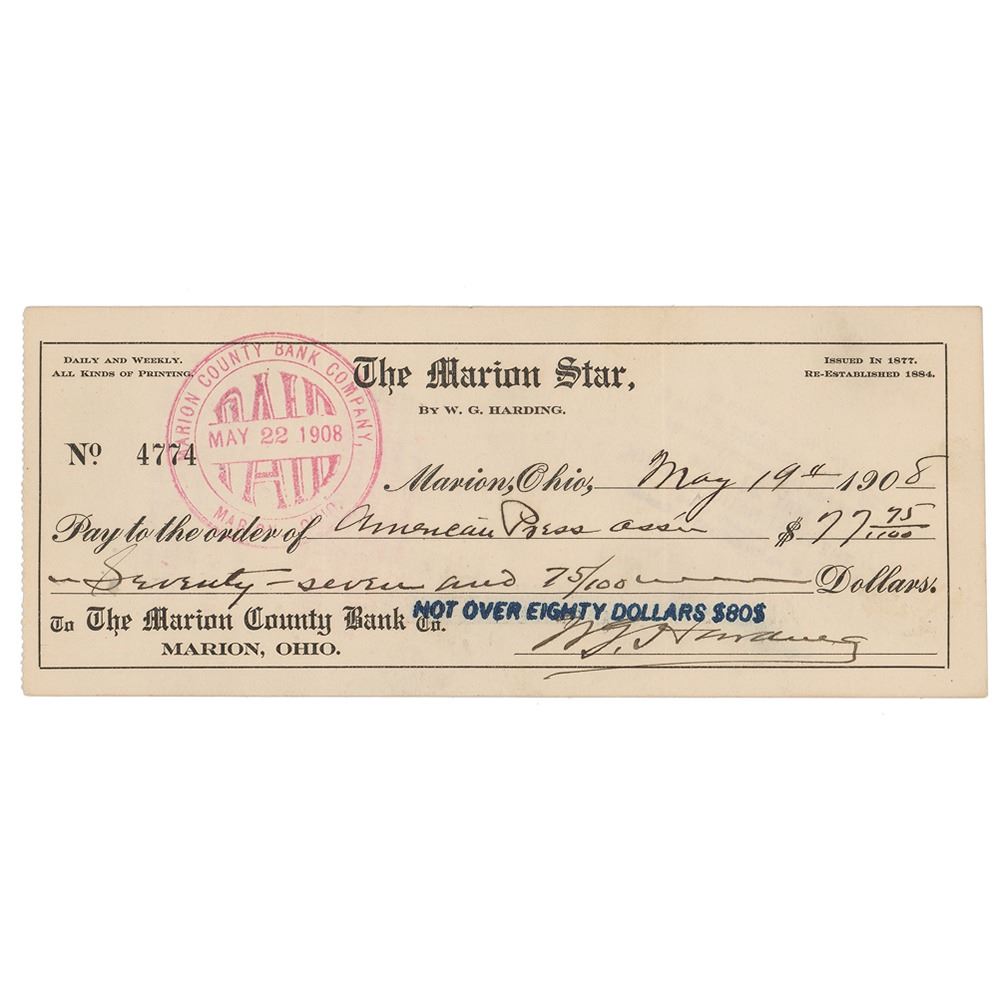 DAILY AND WEEKLY.
ALL KINDS OF PRINTING.
The Marion Star,
BY W. G. HARDING.
ISSUED IN 1877.
RE-ESTABLISHED 1884.
MARION COUNTY BANK COMPANY,
PAID
MAY 22 1908
MARION, OHIO.
No 4774
Marion, Ohio, May 19th 1908
Pay to the order of American Press assn $77 75/100
Seventy-seven and 75/100 Dollars.
NOT OVER EIGHTY DOLLARS $80$
To The Marion County Bank Co.
MARION, OHIO.
W. G. Harding